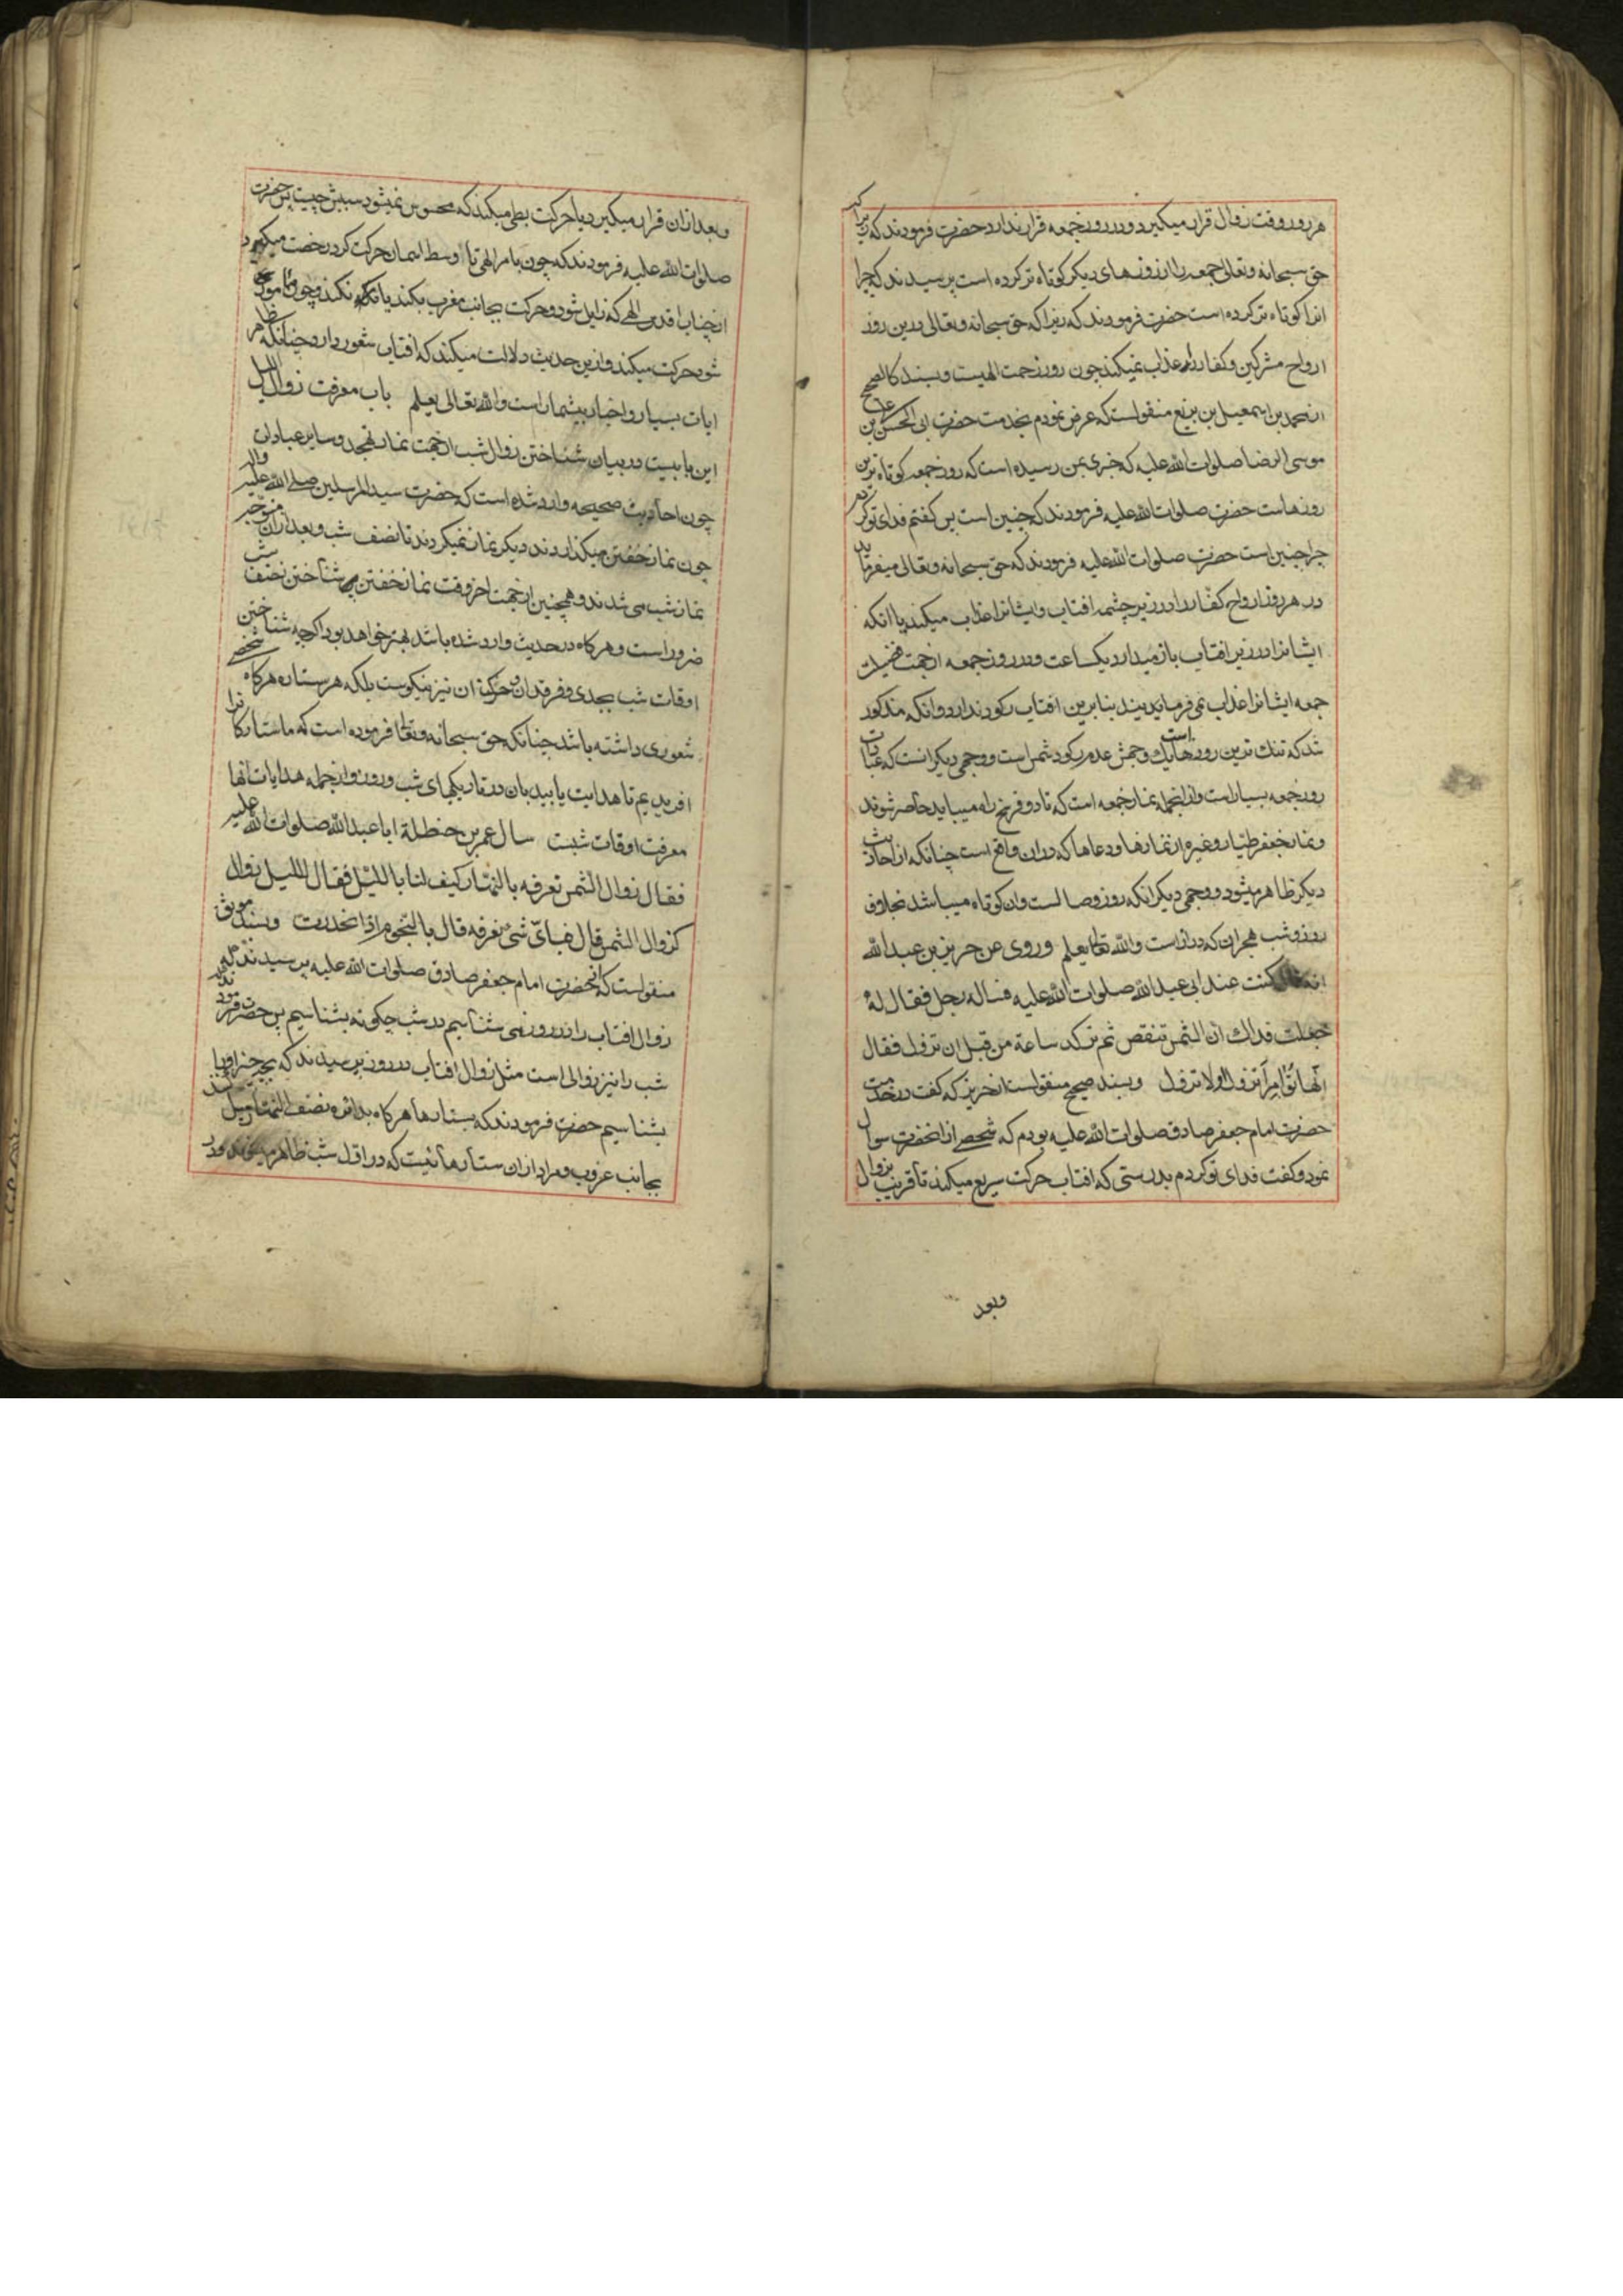 هر روز وقت زوال قرار میکیرد و در روز جمعه قرار ندارد حضرت فرمودند که زیرا که
حق سبحانه و تعالی جمعه را از روزهای دیکر کوتاه تر کرده است پرسیدند که چرا
انرا کوتاه تر کرده است حضرت فرمودند که زیرا که حق سبحانه و تعالی درین روز
ارواح مشرکین و کفار را عذاب نمیکند چون روز رحمت الهیست و بسند کالصحیح
از محمد بن اسمعیل بن بزیع منقولست که عرض نمودم بخدمت حضرت ابی الحسن علی بن
موسی الرضا صلوات الله علیه که خبری بمن رسیده است که روز جمعه کوتاه ترین
روزهاست حضرت صلوات الله علیه فرمودند که چنین است پس کفتم فدای تو کردم
چرا چنین است حضرت صلوات الله علیه فرمودند که حق سبحانه و تعالی میفرماید
در هر روز ارواح کفار را در زیر چشمه افتاب و ایشانرا عذاب میکند یا انکه
ایشانرا در زیر افتاب باز میدارد یکساعت و در روز جمعه از جهت فضیلت
جمعه ایشانرا عذاب نمی فرمایند بنابرین افتاب رکود ندارد و انکه مذکور
شد که تنک ترین روزهاست یک وجهش عدم رکود شمس است و وجهی دیکر انست که عبادات
روز جمعه بسیار است و از انجمله نماز جمعه است که تا دو فرسخ راه میباید حاضر شوند
و نماز جعفر طیار و غیره از نمازها و دعاها که در ان واقع است چنانکه از احادیث
دیکر ظاهر میشود و وجهی دیکر انکه روز وصالست و ان کوتاه میباشد بخلاف
روز و شب هجران که دراز است و الله تعالی یعلم وروی عن حریز بن عبد الله
انه قال کنت عند ابی عبد الله صلوات الله علیه فساله رجل فقال له
جعلت فداک ان الشمس تنقص ثم ترکد ساعة من قبل ان تزول فقال
انها تؤامر أتزول او لا تزول و بسند صحیح منقولست از حریز که کفت در خدمت
حضرت امام جعفر صادق صلوات الله علیه بودم که شخصی از انحضرت سوال
نمود و کفت فدای تو کردم بدرستی که افتاب حرکت سریع میکند تا قریب بزوال
وبعد
و بعد از ان قرار میکیرد یا حرکت بطی میکند که محسوس نمیشود سببش چیست پس حضرت
صلوات الله علیه فرمودند که چون بامر الهی تا اوسط اسمان حرکت کرد رخصت میکیرد
از جناب اقدس الهی که زایل شود و حرکت بجانب مغرب بکند یا نکند و چون مامور
شود حرکت میکند و ازین حدیث دلالت میکند که افتاب شعور دارد چنانکه ظاهر
ایات بسیار و اخبار بیشمار است و الله تعالی یعلم باب معرفت زوال اللیل
این بابیست در بیان شناختن زوال شب از جهت نماز تهجد و سایر عبادات
چون احادیث صحیحه وارد شده است که حضرت سید المرسلین صلی الله علیه واله
چون نماز خفتن میکذاردند دیکر نماز نمیکردند تا نصف شب و بعد از ان متوجه
نماز شب می شدند و همچنین از جهت اخر وقت نماز خفتن شناختن نصف شب
ضرور است و هر کاه در حدیث وارد شده باشد بهتر خواهد بود اکرچه شناختن
اوقات شب بجدی و فرقدان و حرکت ان نیز نیکوست بلکه هر ستاره هر کاه شخصی
شعوری داشته باشد چنانکه حق سبحانه و تعالی فرموده است که ما ستارکانرا
افریدیم تا هدایت یابید بان در تاریکیهای شب و روز و از جمله هدایات انها
معرفت اوقات شبست سال عمر بن حنظلة ابا عبد الله صلوات الله علیه
فقال زوال الشمس نعرفه بالنهار کیف لنا باللیل فقال للیل زوال
کزوال الشمس قال فبای شئ نعرفه قال بالنجوم اذا انحدرت و بسند موثق
منقولست که از حضرت امام جعفر صادق صلوات الله علیه پرسیدند که
زوال افتاب را در روز می شناسیم در شب چکونه بشناسیم پس حضرت فرمودند که
شب را نیز زوالی است مثل زوال افتاب در روز پرسیدند که بچه چیز اورا
بشناسیم حضرت فرمودند که بستارها هر کاه بدائره نصف النهار میل کند
بجانب غروب و مراد از ان ستارهائیست که در اول شب ظاهر میشوند و در